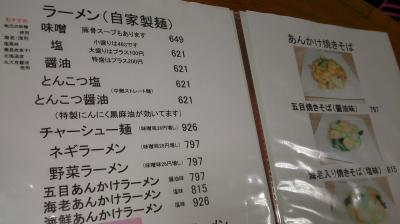 ラーメン(自家製麺)
おすすめ
味噌
豚骨スープもあります
649
塩
小盛りは463です
大盛りはプラス100円
621
醤油
特盛はプラス200円
621
とんこつ塩
621
(中細ストレート麺)
とんこつ醤油
621
(特製にんにく黒麻油が効いてます)
チャーシュー麺
(味噌味28円増し)
926
ネギラーメン
(味噌味28円増し)
797
野菜ラーメン
(味噌味28円増し)
797
五目あんかけラーメン
醤油味
797
海老あんかけラーメン
塩味
815
海鮮あんかけラーメン
塩味
926
あんかけ焼きそば
五目焼きそば(醤油味)
797
海老入り焼きそば(塩味)
815